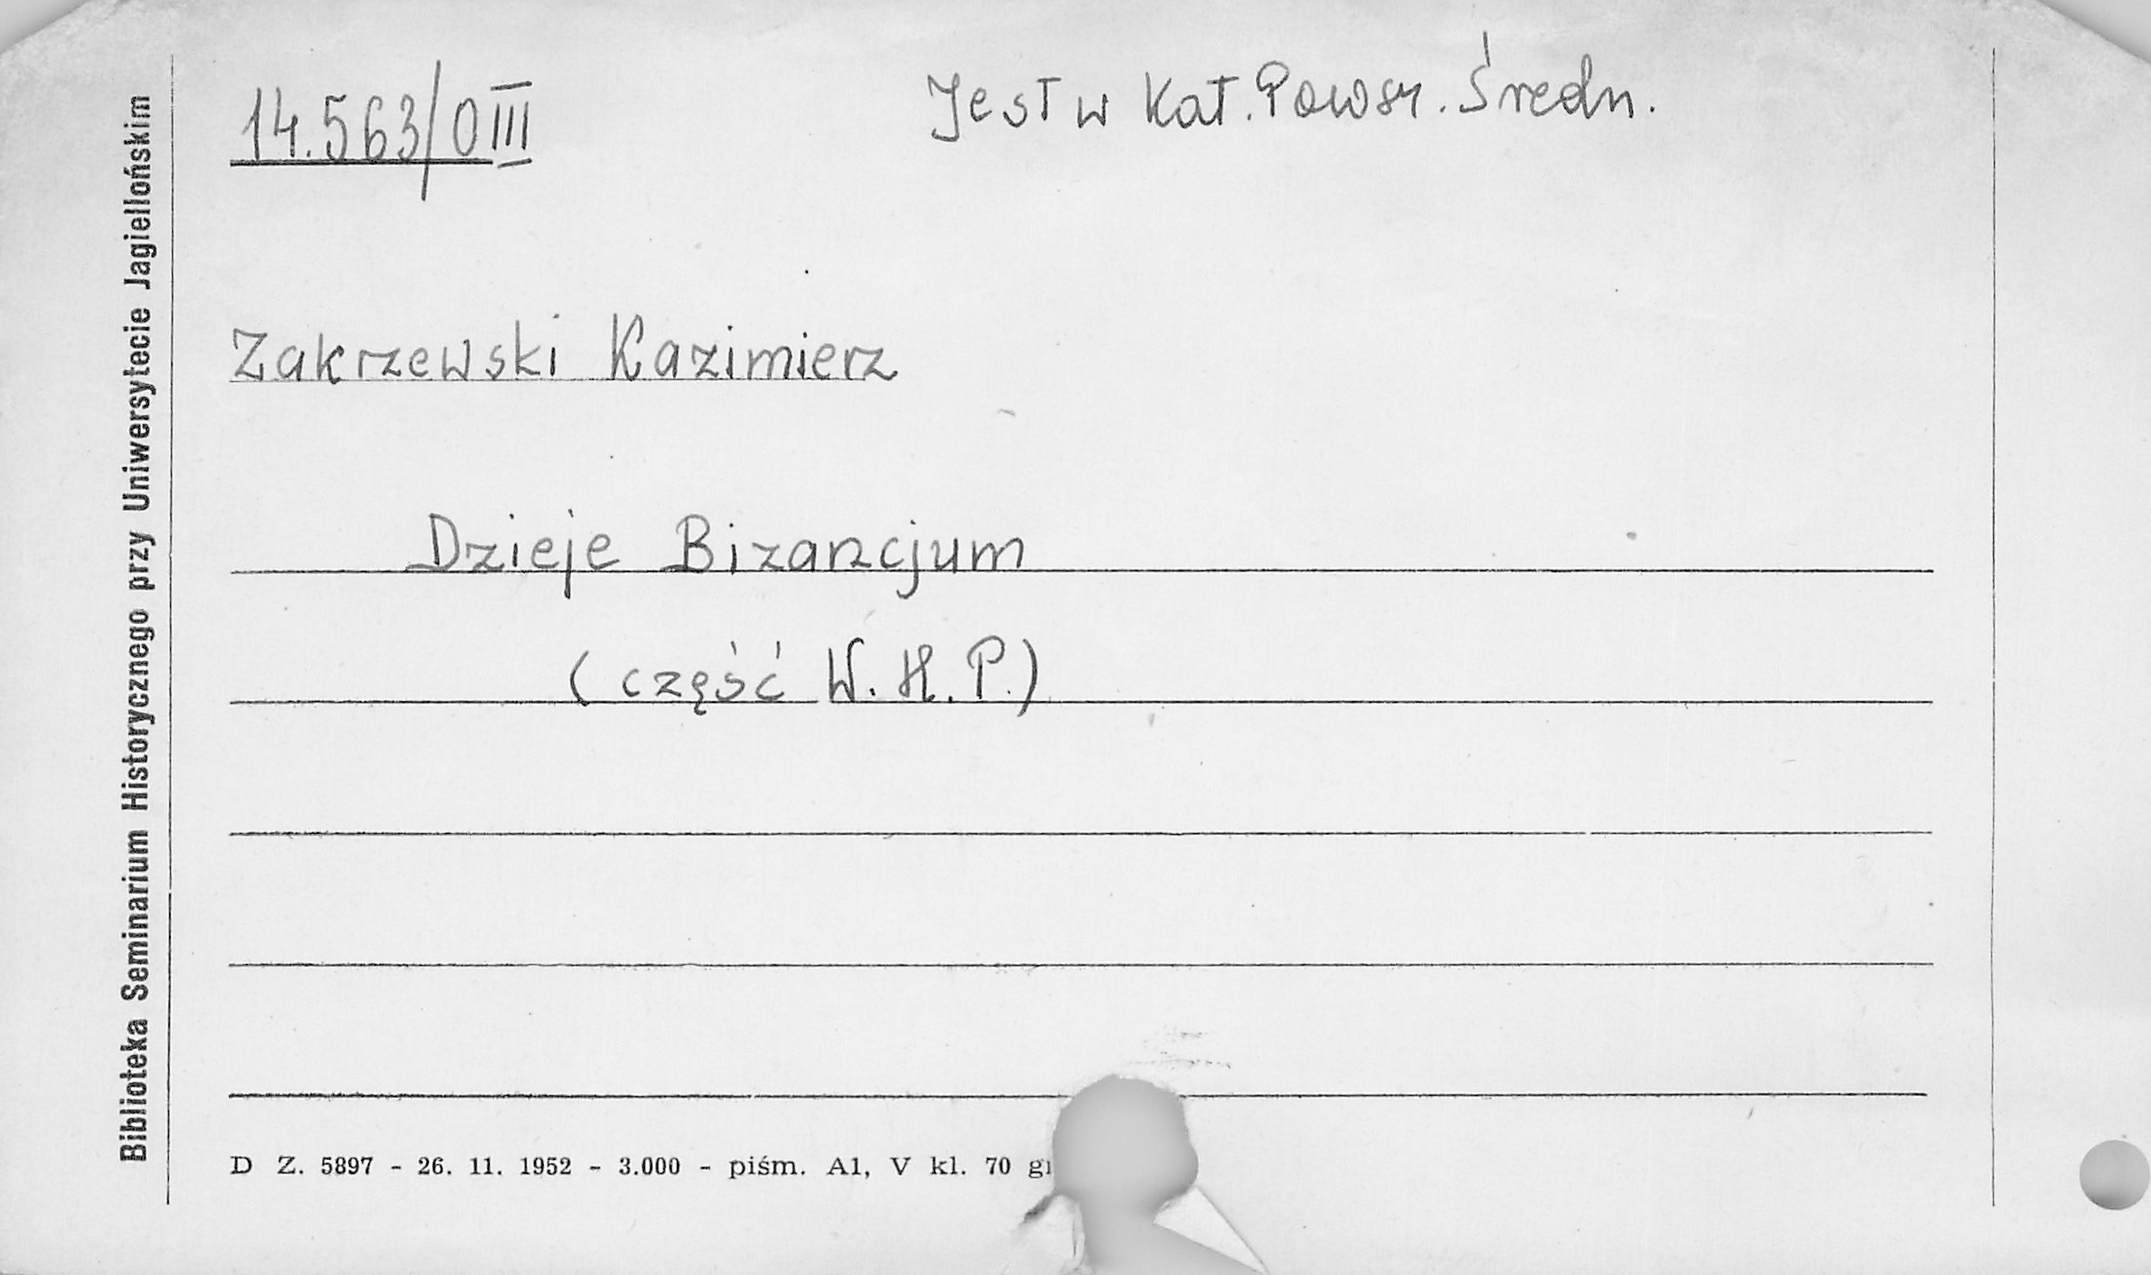 14.563/O III
Jest w Kat. Powsz. Średn.
Zakrzewski Kazimierz
Dzieje Bizancjum
(część W.H.P.)
D Z. 5897 - 26. 11. 1952 - 3.000 - piśm. A1, V kl. 70
Biblioteka Seminarium Historycznego przy Uniwersytecie Jagiellońskim